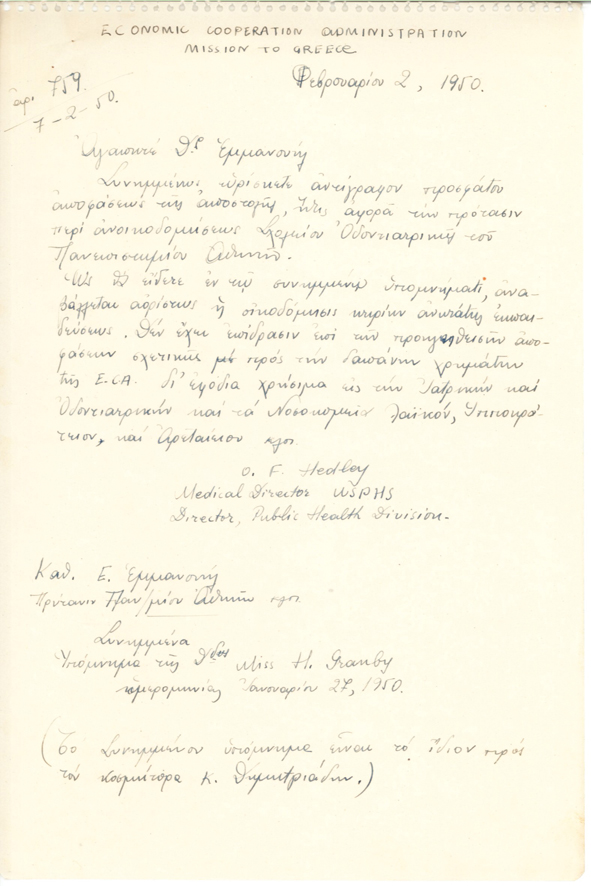 ECONOMIC COOPERATION ADMINISTRATION
MISSION TO GREECE
Φεβρουαρίου 2, 1950.
ἀρ. 759
7-2-50.
Ἀγαπητὲ Δρ Ἐμμανουήλ
Συνημμένως εὑρίσκετε ἀντίγραφον προσφάτου
ἀποφάσεως τῆς ἀποστολῆς, ἥτις ἀφορᾶ τὴν πρότασιν
περὶ ἀνοικοδομήσεως Σχολείου Ὀδοντιατρικῆς τοῦ
Πανεπιστημίου Ἀθηνῶν.
Ὡς θὰ εἴδετε ἐν τῷ συνημμένῳ ὑπομνήματι, ἀνα-
βάλλεται ἀορίστως ἡ οἰκοδόμησις κτιρίων ἀνωτάτης ἐκπαι-
δεύσεως. Δὲν ἔχει ἐπίδρασιν ἐπὶ τῶν προηγηθεισῶν ἀπο-
φάσεων σχετικῶς πρὸς τὴν δαπάνην χρημάτων
τῆς E.C.A. δι' ἐφόδια χρήσιμα εἰς τὴν Ἰατρικὴν καὶ
Ὀδοντιατρικὴν καὶ τὰ Νοσοκομεῖα Λαϊκόν, Ἱπποκρά-
τειον, καὶ Ἀρεταίειον κλπ.
O. F. Hedley
Medical Director USPHS
Director, Public Health Division.
Καθ. Ε. Ἐμμανουήλ
Πρύτανιν Παν/μίου Ἀθηνῶν κλπ.
Συνημμένα
Ὑπόμνημα τῆς Δδος Miss H. Granby
ἡμερομηνίας Ἰανουαρίου 27, 1950.
(Τὸ Συνημμένον ὑπόμνημα εἶναι τὸ ἴδιον πρὸς
τὸν κοσμήτορα κ. Δημητριάδην.)